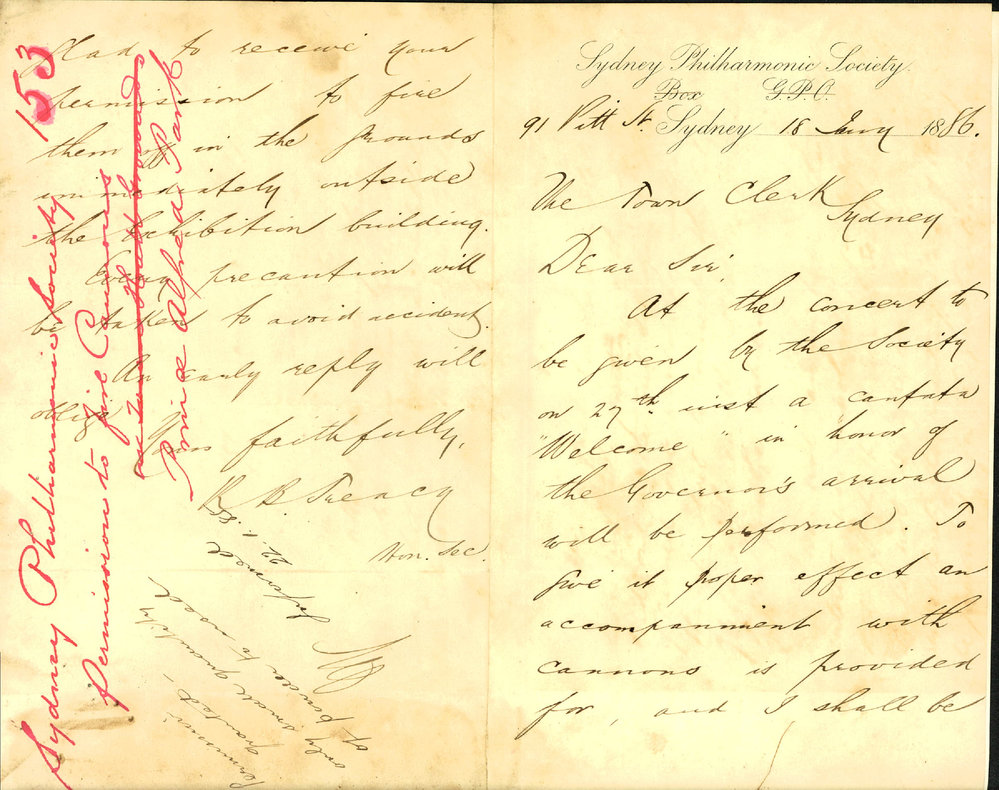 Sydney Philharmonic Society.
Box G.P.O.
91 Pitt St. Sydney 18 Jany 1886.
The Town Clerk
Sydney
Dear Sir,
At the concert to
be given by the Society
on 27th inst a cantata
"Welcome" in honor of
the Governor's arrival
will be performed. To
give it proper effect an
accompaniment with
cannons is provided
for, and I shall be
glad to receive your
permission to fire
them off in the grounds
immediately outside
the Exhibition building.
Every precaution will
be taken to avoid accident.
An early reply will
oblige
Yours faithfully,
R. B. Treacy
Hon. Sec.
153
Sydney Philharmonic Society
Permission to fire Cannons
Prince Alfred Park
granted,
only small quantity
of powder to
Informed
22.1.86